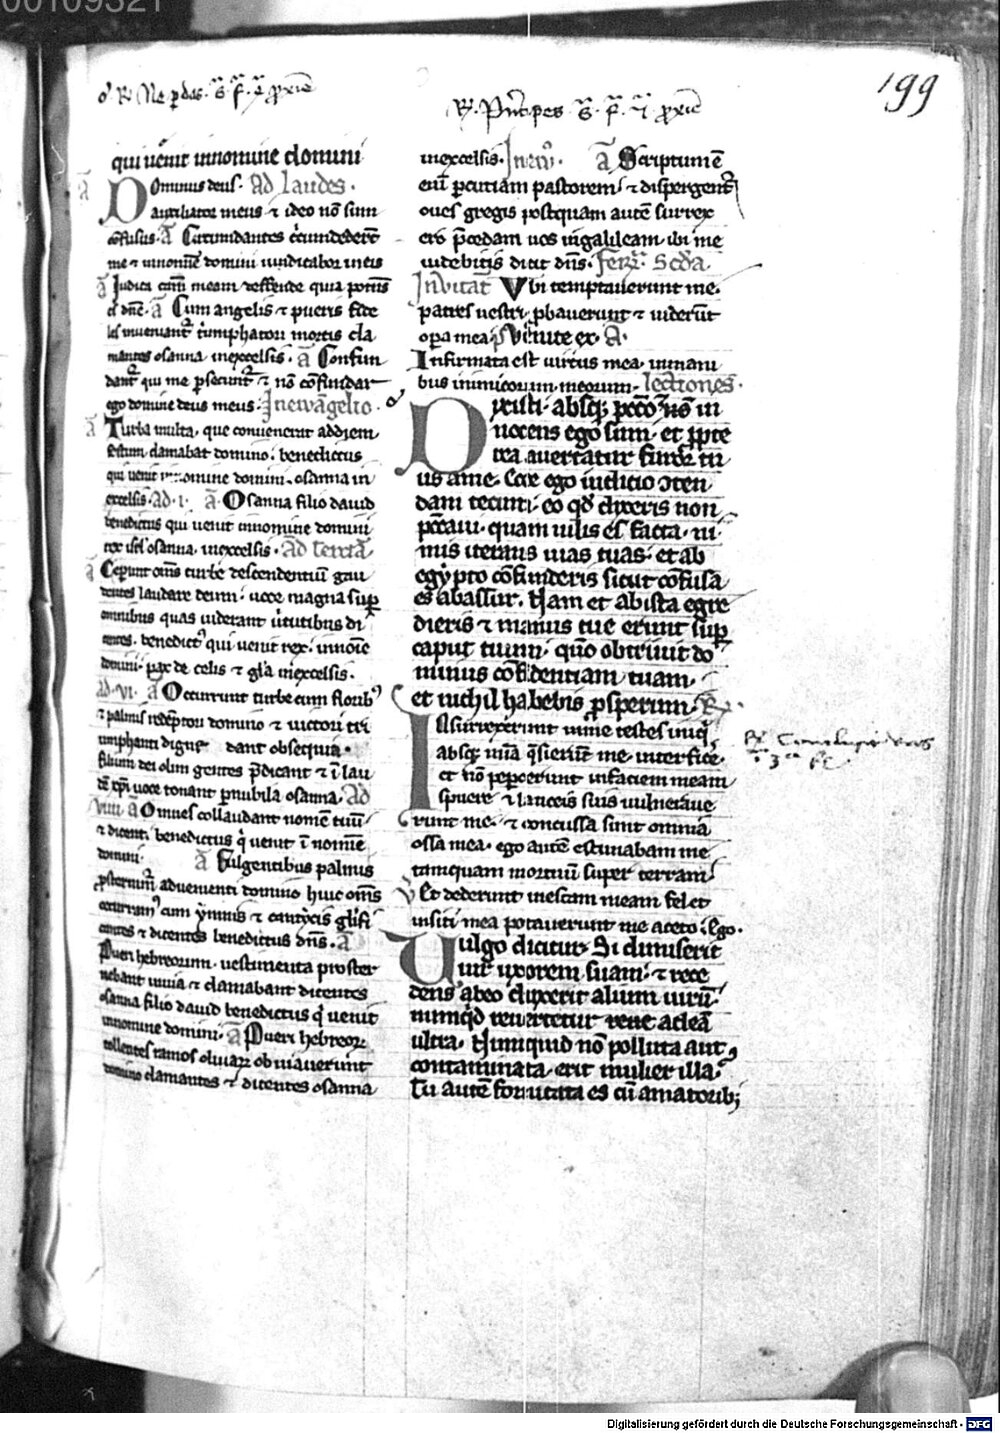 00109321
199
qui uēnit innomine domini
Dominus deus. Ad laudes.
auxiliator meus ⁊ ideo nō sum
ꝯfusus. a᷃ Circumdantes circumdederūt
me ⁊ innomīe domini uindicabor ineis
a᷃ Iudica cām meam deffende quia potens
es dn̄e. a᷃ Cum angelis ⁊ pueris fide
les inueniant᷑ triumphatori mortis cla
mantes osanna inexcelsis. a᷃ Confun
dant᷑ qui me ꝑsecunt᷑ ⁊ nō cōfundar
ego domine deus meus. Inewāgelio.
a᷃ Turba multa. que conuenerat addiem
festum clamabat domino. benedictus
qui uenit innomine domini. osanna in
excelsis. Ad .i. a᷃ Osanna filio dauid
benedictus qui uenit innomine domini
rex isrl̄ osanna. inexcelsis. Ad terciā.
a᷃ Ceperunt om̄s turbe descendentiū gau
dentes laudare deum. uoce magna suꝑ
omnibus quas uiderant uirtutibus di
centes. benedict᷒ qui uenit rex. innoīe
domini. pax de celis ⁊ gl̄a inexcelsis.
Ad .vi. a᷃ Occurrunt turbe cum florib᷒
⁊ palmis redēptori domino ⁊ uictori tri
umphanti digna dant obsequia.
filium dei olim gentes p̄dicant ⁊ ī lau
dē xp̄i uoce tonant ꝑnubila osanna. Ad
viiii. a᷃ Omnes collaudant nomē tuū.
⁊ dicent. benedictus q̇ uenit ī nomīe
domini. a᷃ Fulgentibus palmis
ꝓsternimur aduenienti domino huic om̄s
occurram᷒ cum ymnis ⁊ canticis glīfi
cantes ⁊ dicentes benedictus dn̄s. a᷃
Pueri hebreorum. uestimenta proster
nebant inuia ⁊ clamabant dicentes
osanna filio dauid benedictus q̇ uenit
innomine domini. a᷃ Pueri hebreoꝝ
tollentes ramos oliuaꝝ obuiauerunt
domino clamantes ⁊ dicentes osanna
inexcelsis. a᷃ Scriptum ē
enī ꝑcutiam pastorem. ⁊ dispergent᷑
oues gregis postquam autē surrex
ero p̄cedam uos ingalileam. ibi me
uidebitis dicit dn̄s. Feria Scda.
Inuitat̄ Vbi temptauerunt me.
patres uestri ꝓbauerunt ⁊ uiderūt
opera mea
Infirmata est uirtus mea. inmani
bus inimicorum meorum. lectiones.
Dixisti. absq; pccō ⁊ in
nocens ego sum. et ꝓpte
rea auertatur furor tu
us ame. Ecce ego iudicio ꝯten
dam tecum. eo qd̄ dixeris non
peccaui. quam uilis es facta. ni
mis iterans uias tuas. et ab
egypto cōfunderis sicut cōfusa
es abassur. Nam et abista egre
dieris ⁊ manus tue erunt suꝑ
caput tuum. quō obtriuit do
minus cōfidentiam tuam.
et nichil habebis ꝓsperum. R̷
Insurrexerunt in me testes iniqi
absq; mīa q̄sierūt me interficē.
et nō pepercerunt infaciem meam
spuere ⁊ lanceis suis uulneraue
runt me. ⁊ concussa sunt omnia
ossa mea. ego autē estimabam me
tamquam mortuū super terram
V Et dederunt inescam meam fel et
insiti mea potauerunt me aceto. Ego.
Uulgo dicitur. Si dimiserit
uir uxorem suam. ⁊ rece
dens abeo duxerit alium uirū.
numqd̄ reuertetur rene adeā
ultra. Numquid nō polluta aut
contaminata. erit mulier illa.
Tu autē fornicata es cū amatorib;
Digitalisierung gefördert durch die Deutsche Forschungsgemeinschaft - DFG